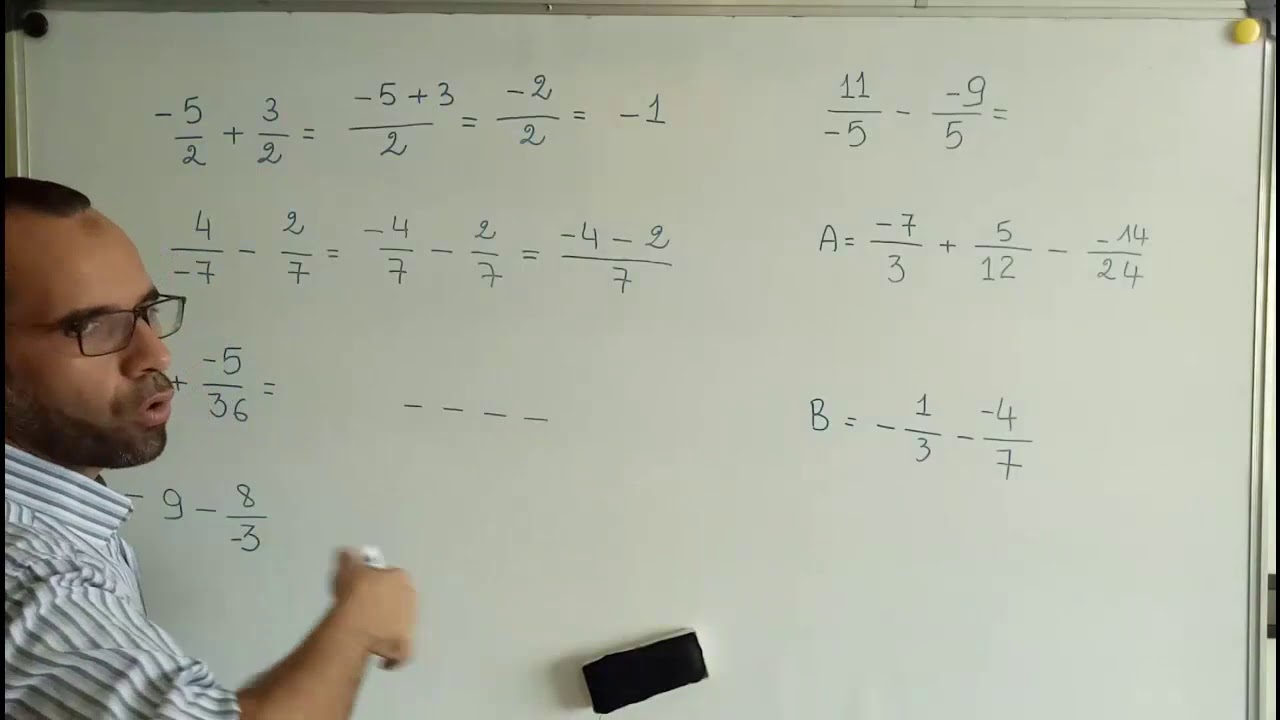 -5/2 + 3/2 = (-5 + 3)/2 = -2/2 = -1
4/-7 - 2/7 = -4/7 - 2/7 = (-4 - 2)/7
+ -5/36 = - - - -
- 9 - 8/-3
11/-5 - -9/5 =
A = -7/3 + 5/12 - -14/24
B = - 1/3 - -4/7